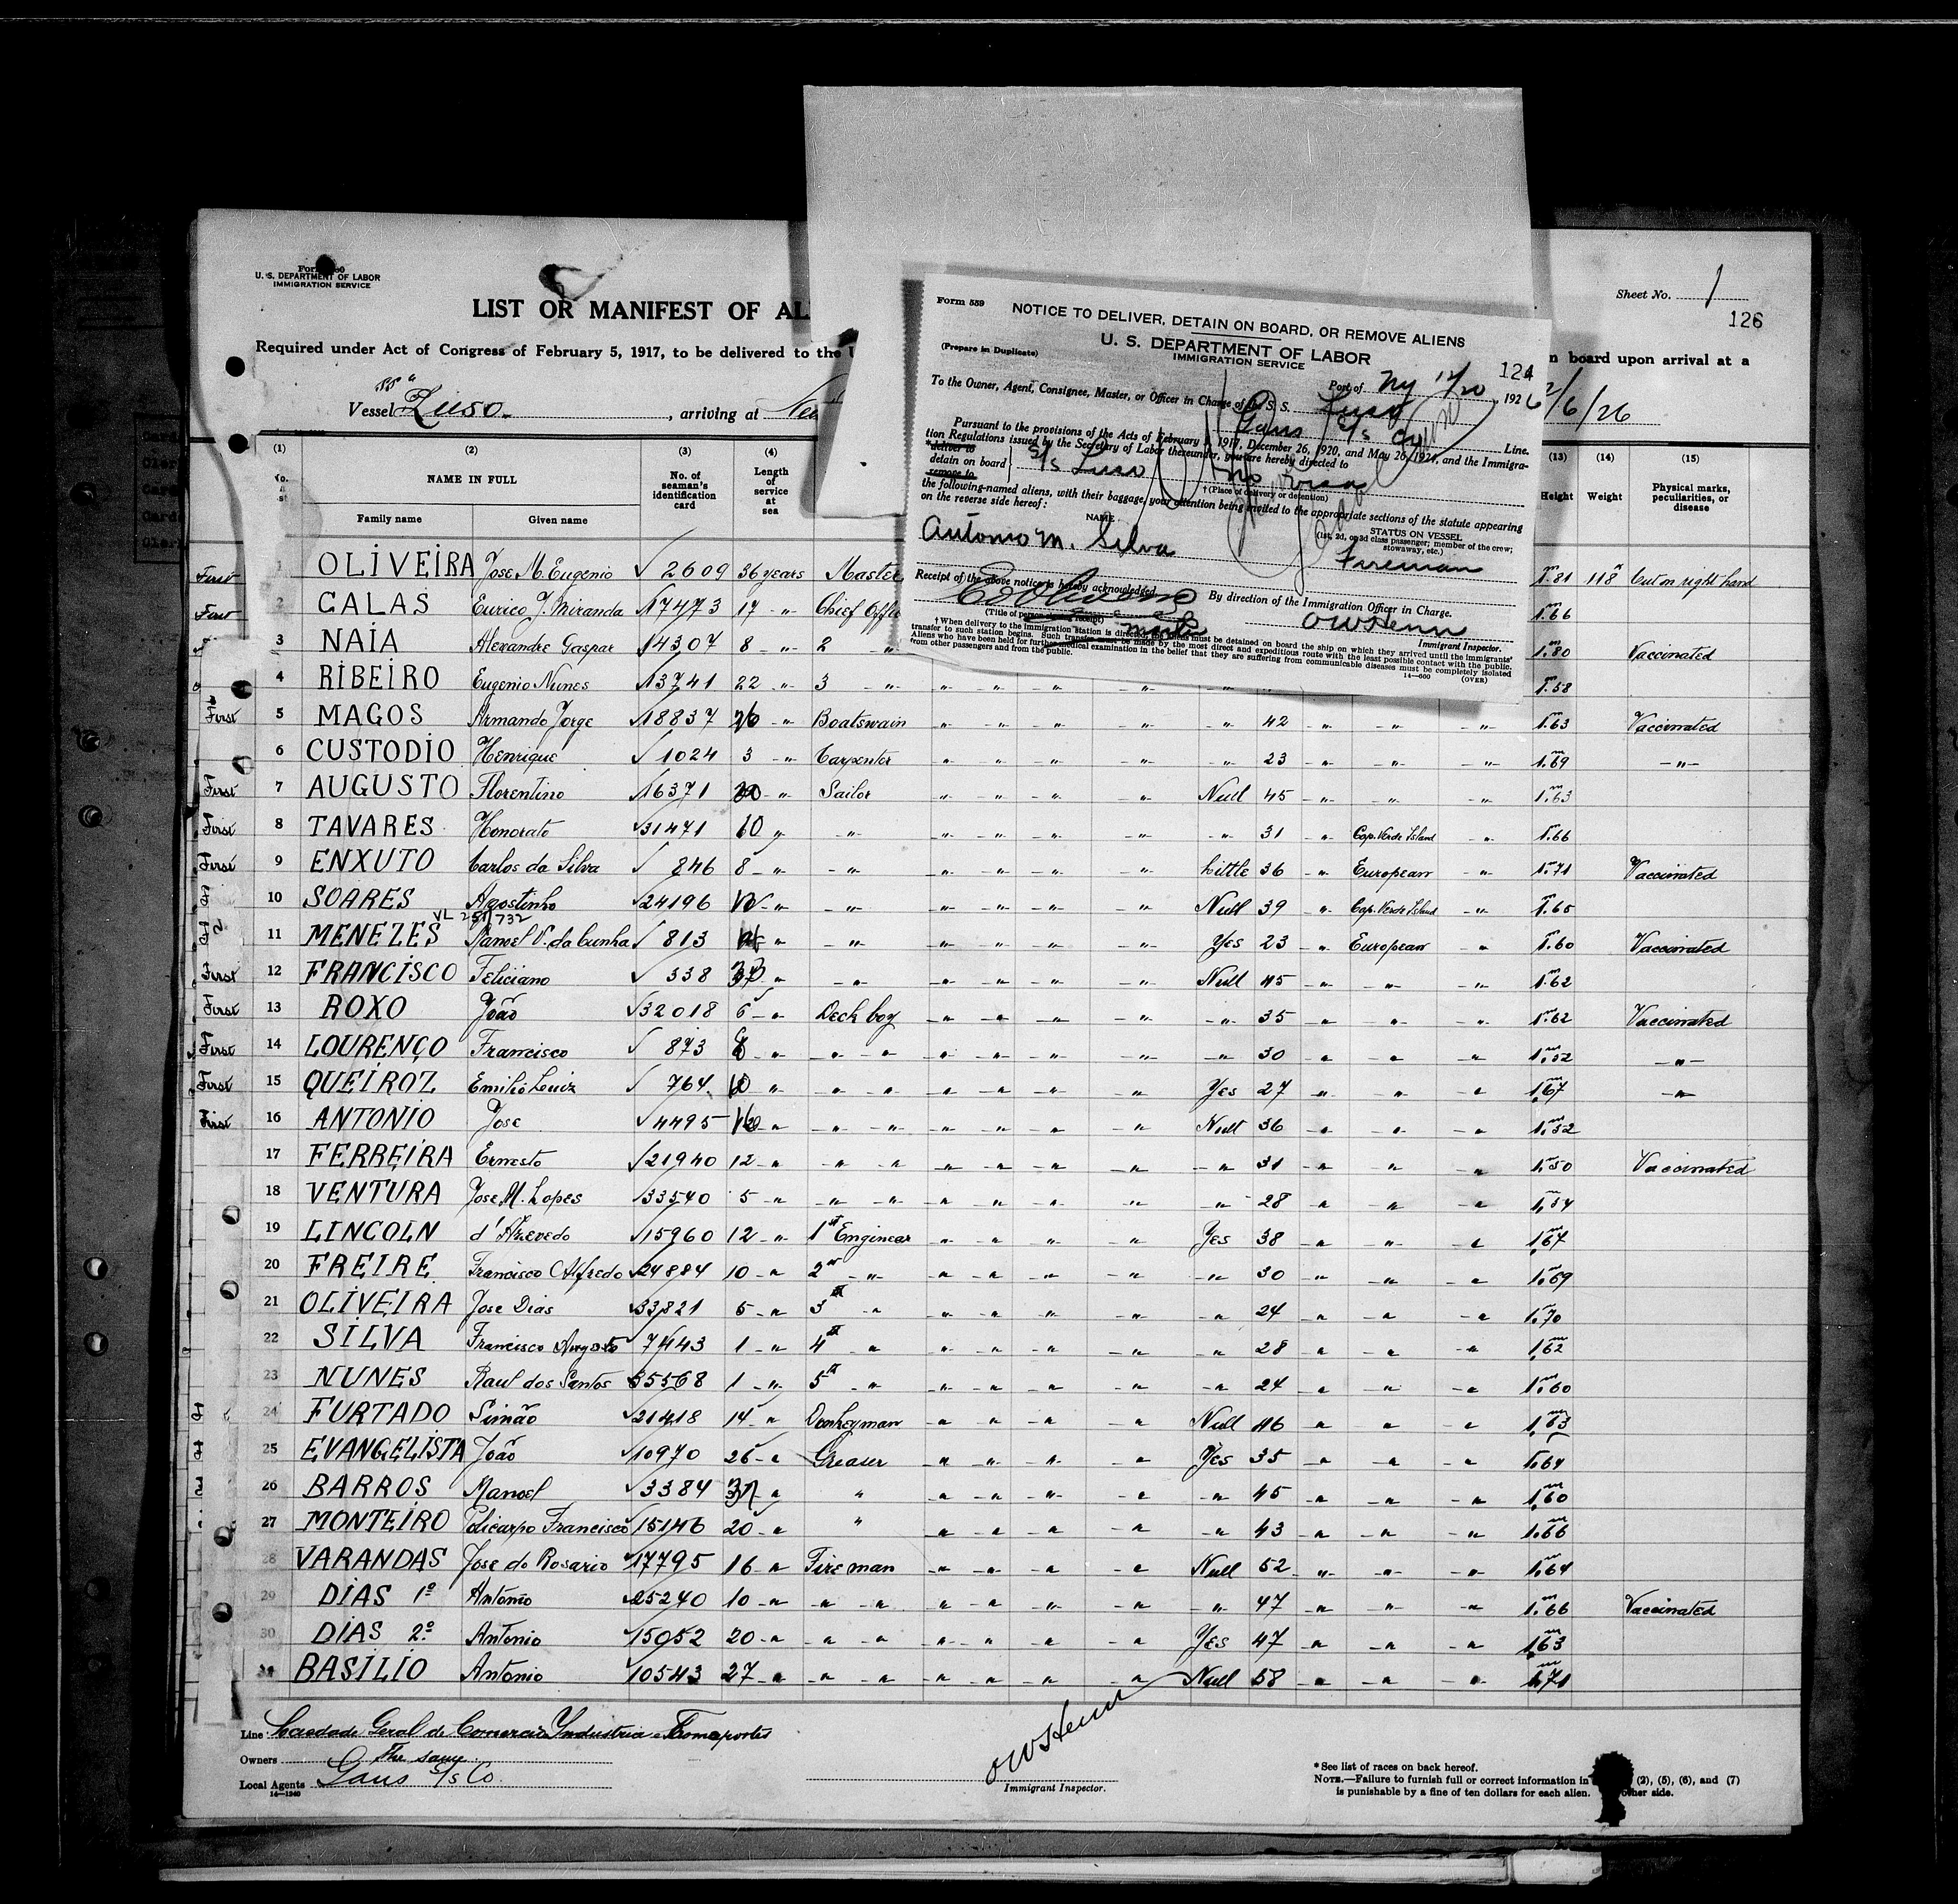 Form
U. S. DEPARTMENT OF LABOR
IMMIGRATION SERVICE
LIST OR MANIFEST OF AL
Required under Act of Congress of February 5, 1917, to be delivered to the U
n board upon arrival at a
Sheet No. 1
126
Vessel SS "Luso , arriving at New
2/6/26
Form 559
NOTICE TO DELIVER, DETAIN ON BOARD, OR REMOVE ALIENS
U. S. DEPARTMENT OF LABOR
IMMIGRATION SERVICE
(Prepare in Duplicate)
124
Port of NY 12/20, 1926
To the Owner, Agent, Consignee, Master, or Officer in Charge of the S. S. Luso
Gans S/s Line.
Pursuant to the provisions of the Acts of February 5, 1917, December 26, 1920, and May 26, 1924, and the Immigra-
tion Regulations issued by the Secretary of Labor thereunder, you are hereby directed to
* deliver to
detain on board
remove to
S/s Luso
† (Place of delivery or detention)
the following-named aliens, with their baggage, your attention being invited to the appropriate sections of the statute appearing
on the reverse side hereof:
NAME
STATUS ON VESSEL
(1st, 2d, or 3d class passenger; member of the crew;
stowaway, etc.)
Antonio M. Silva
Fireman
Receipt of the above notice is hereby acknowledged
By direction of the Immigration Officer in Charge.
OWHenn
Immigrant Inspector.
Master
† When delivery to the immigration station is directed, the aliens must be detained on board the ship on which they arrived until the immigrants'
transfer to such station begins. Such transfer must be made by the most direct and expeditious route with the least possible contact with the public.
Aliens who have been held for further medical examination in the belief that they are suffering from communicable diseases must be completely isolated
from other passengers and from the public.
14—600 (OVER)
(1) (2) (3) (4) (13) (14) (15)
NAME IN FULL
Family name Given name
No. of seaman's identification card
Length of service at sea
Height Weight
Physical marks, peculiarities, or disease
First 1 OLIVEIRA Jose M. Eugenio 2609 36 years Master 1.81 118 Cut on right hand
First 2 GALAS Eurico J. Miranda 17473 17 -"- Chief Offic 1.66
3 NAIA Alexandre Gaspar 14307 8 -"- 2 -"- 1.80 Vaccinated
4 RIBEIRO Eugenio Nunes 13741 22 -"- 3 -"- 1.58
First 5 MAGOS Armando Jorge 18837 26 -"- Boatswain 42 1.63 Vaccinated
6 CUSTODIO Henrique 1024 3 -"- Carpenter 23 1.69 -"-
First 7 AUGUSTO Florentino 16371 20 -"- Sailor Null 45 1.63
First 8 TAVARES Honorato 31471 10 -"- 31 Cap. Verde Island 1.66
First 9 ENXUTO Carlos da Silva 846 8 -"- Little 36 European 1.71 Vaccinated
10 SOARES Agostinho 24196 -"- Null 39 Cap. Verde Island 1.65
VL 251/732
11 MENEZES Manoel V. da Cunha 813 -"- Yes 23 European 1.60 Vaccinated
First 12 FRANCISCO Feliciano 338 -"- Null 45 1.62
First 13 ROXO João 32018 6 -"- Deck boy 35 1.62 Vaccinated
First 14 LOURENÇO Francisco 873 -"- 30 1.52 -"-
First 15 QUEIROZ Emilio Luiz 764 10 -"- Yes 27 1.67 -"-
First 16 ANTONIO Jose 4495 -"- Null 36 1.52
17 FERREIRA Ernesto 21940 12 -"- 31 1.50 Vaccinated
18 VENTURA Jose M. Lopes 33540 5 -"- 28 1.54
19 LINCOLN d'Azevedo 15960 12 -"- 1st Engineer Yes 38 1.67
20 FREIRE Francisco Alfredo 24884 10 -"- 2nd -"- 30 1.69
21 OLIVEIRA Jose Dias 33821 5 -"- 3 -"- 24 1.70
22 SILVA Francisco Augosto 7443 1 -"- 4th -"- 28 1.62
23 NUNES Raul dos Santos 35568 1 -"- 5th -"- 24 1.60
24 FURTADO Simão 21418 14 -"- Donkeyman Null 46 1.63
25 EVANGELISTA João 10970 26 -"- Greaser Yes 35 1.64
26 BARROS Manoel 3384 -"- " 45 1.60
27 MONTEIRO Policarpo Francisco 15146 20 -"- " 43 1.66
28 VARANDAS Jose do Rosario 17795 16 -"- Fireman Null 52 1.64
29 DIAS 1º Antonio 25240 10 -"- 47 1.66 Vaccinated
30 DIAS 2º Antonio 15052 20 -"- Yes 47 1.63
31 BASILIO Antonio 10543 27 -"- Null 58 1.71
Line Sociedade Geral de Comercio Industria e Transportes
Owners The same
Local Agents Gans S/s Co.
14—1240
OWHenn
Immigrant Inspector.
* See list of races on back hereof.
NOTE.—Failure to furnish full or correct information in (2), (5), (6), and (7)
is punishable by a fine of ten dollars for each alien. other side.